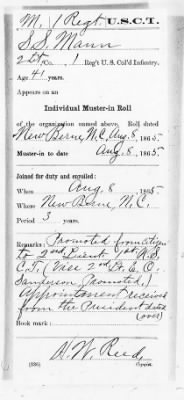 M. | 1 Regt. | U.S.C.T.
S.S. Mann
2 Lt., Co. , 1 Reg't U. S. Col'd Infantry.
Age 41 years.
Appears on an
Individual Muster-in Roll
of the organization named above. Roll dated
New Berne, N.C., Aug. 8, 1865.
Muster-in to date Aug. 8, 1865.
Joined for duty and enrolled:
When Aug. 8, 1865.
Where New Berne, N.C.
Period 3 years.
Remarks: Promoted from Citizen
to 2nd Lieut 1st U.S.
C.T. (Vice 2nd Lt. E.O.
Sanderson Promoted.)
Appointment received
from the President dated
(over)
Book mark:
A.W. Reed
(336) Copyist.